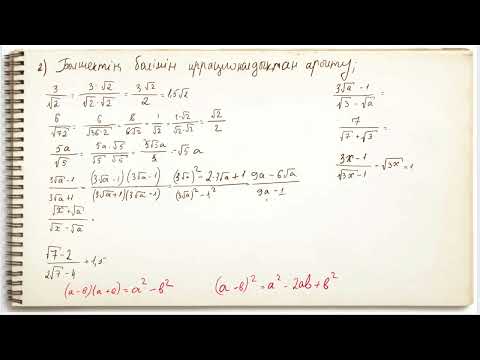 2) Бөлшектің бөлімін иррационалдықтан арылту;
3/√2 = 3·√2/√2·√2 = 3·√2/2 = 1,5√2
6/√72 = 6/√36·2 = 6/6√2 = 1/√2 = 1·√2/√2·√2 = √2/2
5a/√5 = 5a·√5/√5·√5 = 5√5a/5 = √5 a
3√a-1/3√a+1 = (3√a-1)(3√a-1)/(3√a+1)(3√a-1) = (3√a)²-2·3√a+1/(3√a)²-1² = 9a-6√a/9a-1
√x+√a/√x-√a =
√7-2/2√7-4 + 1,5
(a-в)(a+в)=a²-в²
(a-в)²=a²-2ab+b²
3√a-1/√3-√a =
7/√7+√3 =
3x-1/√3x-1 - √3x = 1